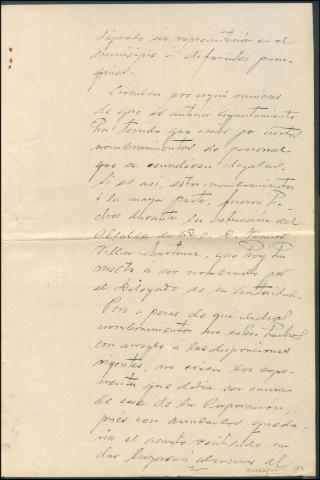 dejando sin representación en el
municipio a diferentes parro-
quias.
Circulan por aquí rumores
de que el anterior ayuntamiento
ha tenido que cesar por ciertos
nombramientos de personal
que se consideran ilegales.
Si es así, estos nombramientos
o la mayor parte, fueron he-
chos durante la actuación del
Alcalde de D. Nemesio
Villar Martinez, que hoy ha
vuelto a ser nombrado por
el Delegado de su autoridad.
Pero a pesar de que dichos
nombramientos no estén hechos
con arreglo a las disposiciones
vigentes, no creen los expo-
nentes que debia ser causa
de cese de la Corporacion,
pués con anularlos queda-
ria el asunto ventilado sin
dar lugar a alarmas al